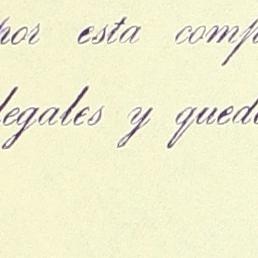 por esta comp
legales y qued